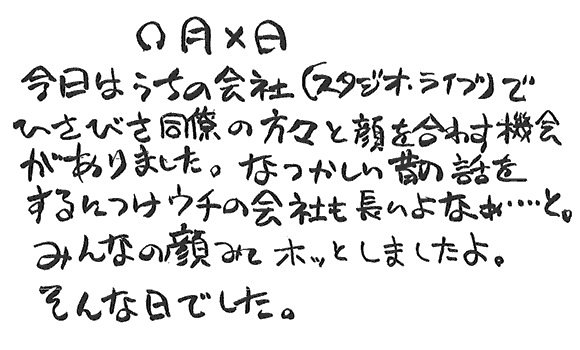 〇月×日
今日はうちの会社(スタジオ・ライブ)で
ひさびさ同僚の方々と顔を合わす機会
がありました。なつかしい昔の話を
するにつけウチの会社も長いよなぁ……と。
みんなの顔みてホッとしましたよ。
そんな日でした。